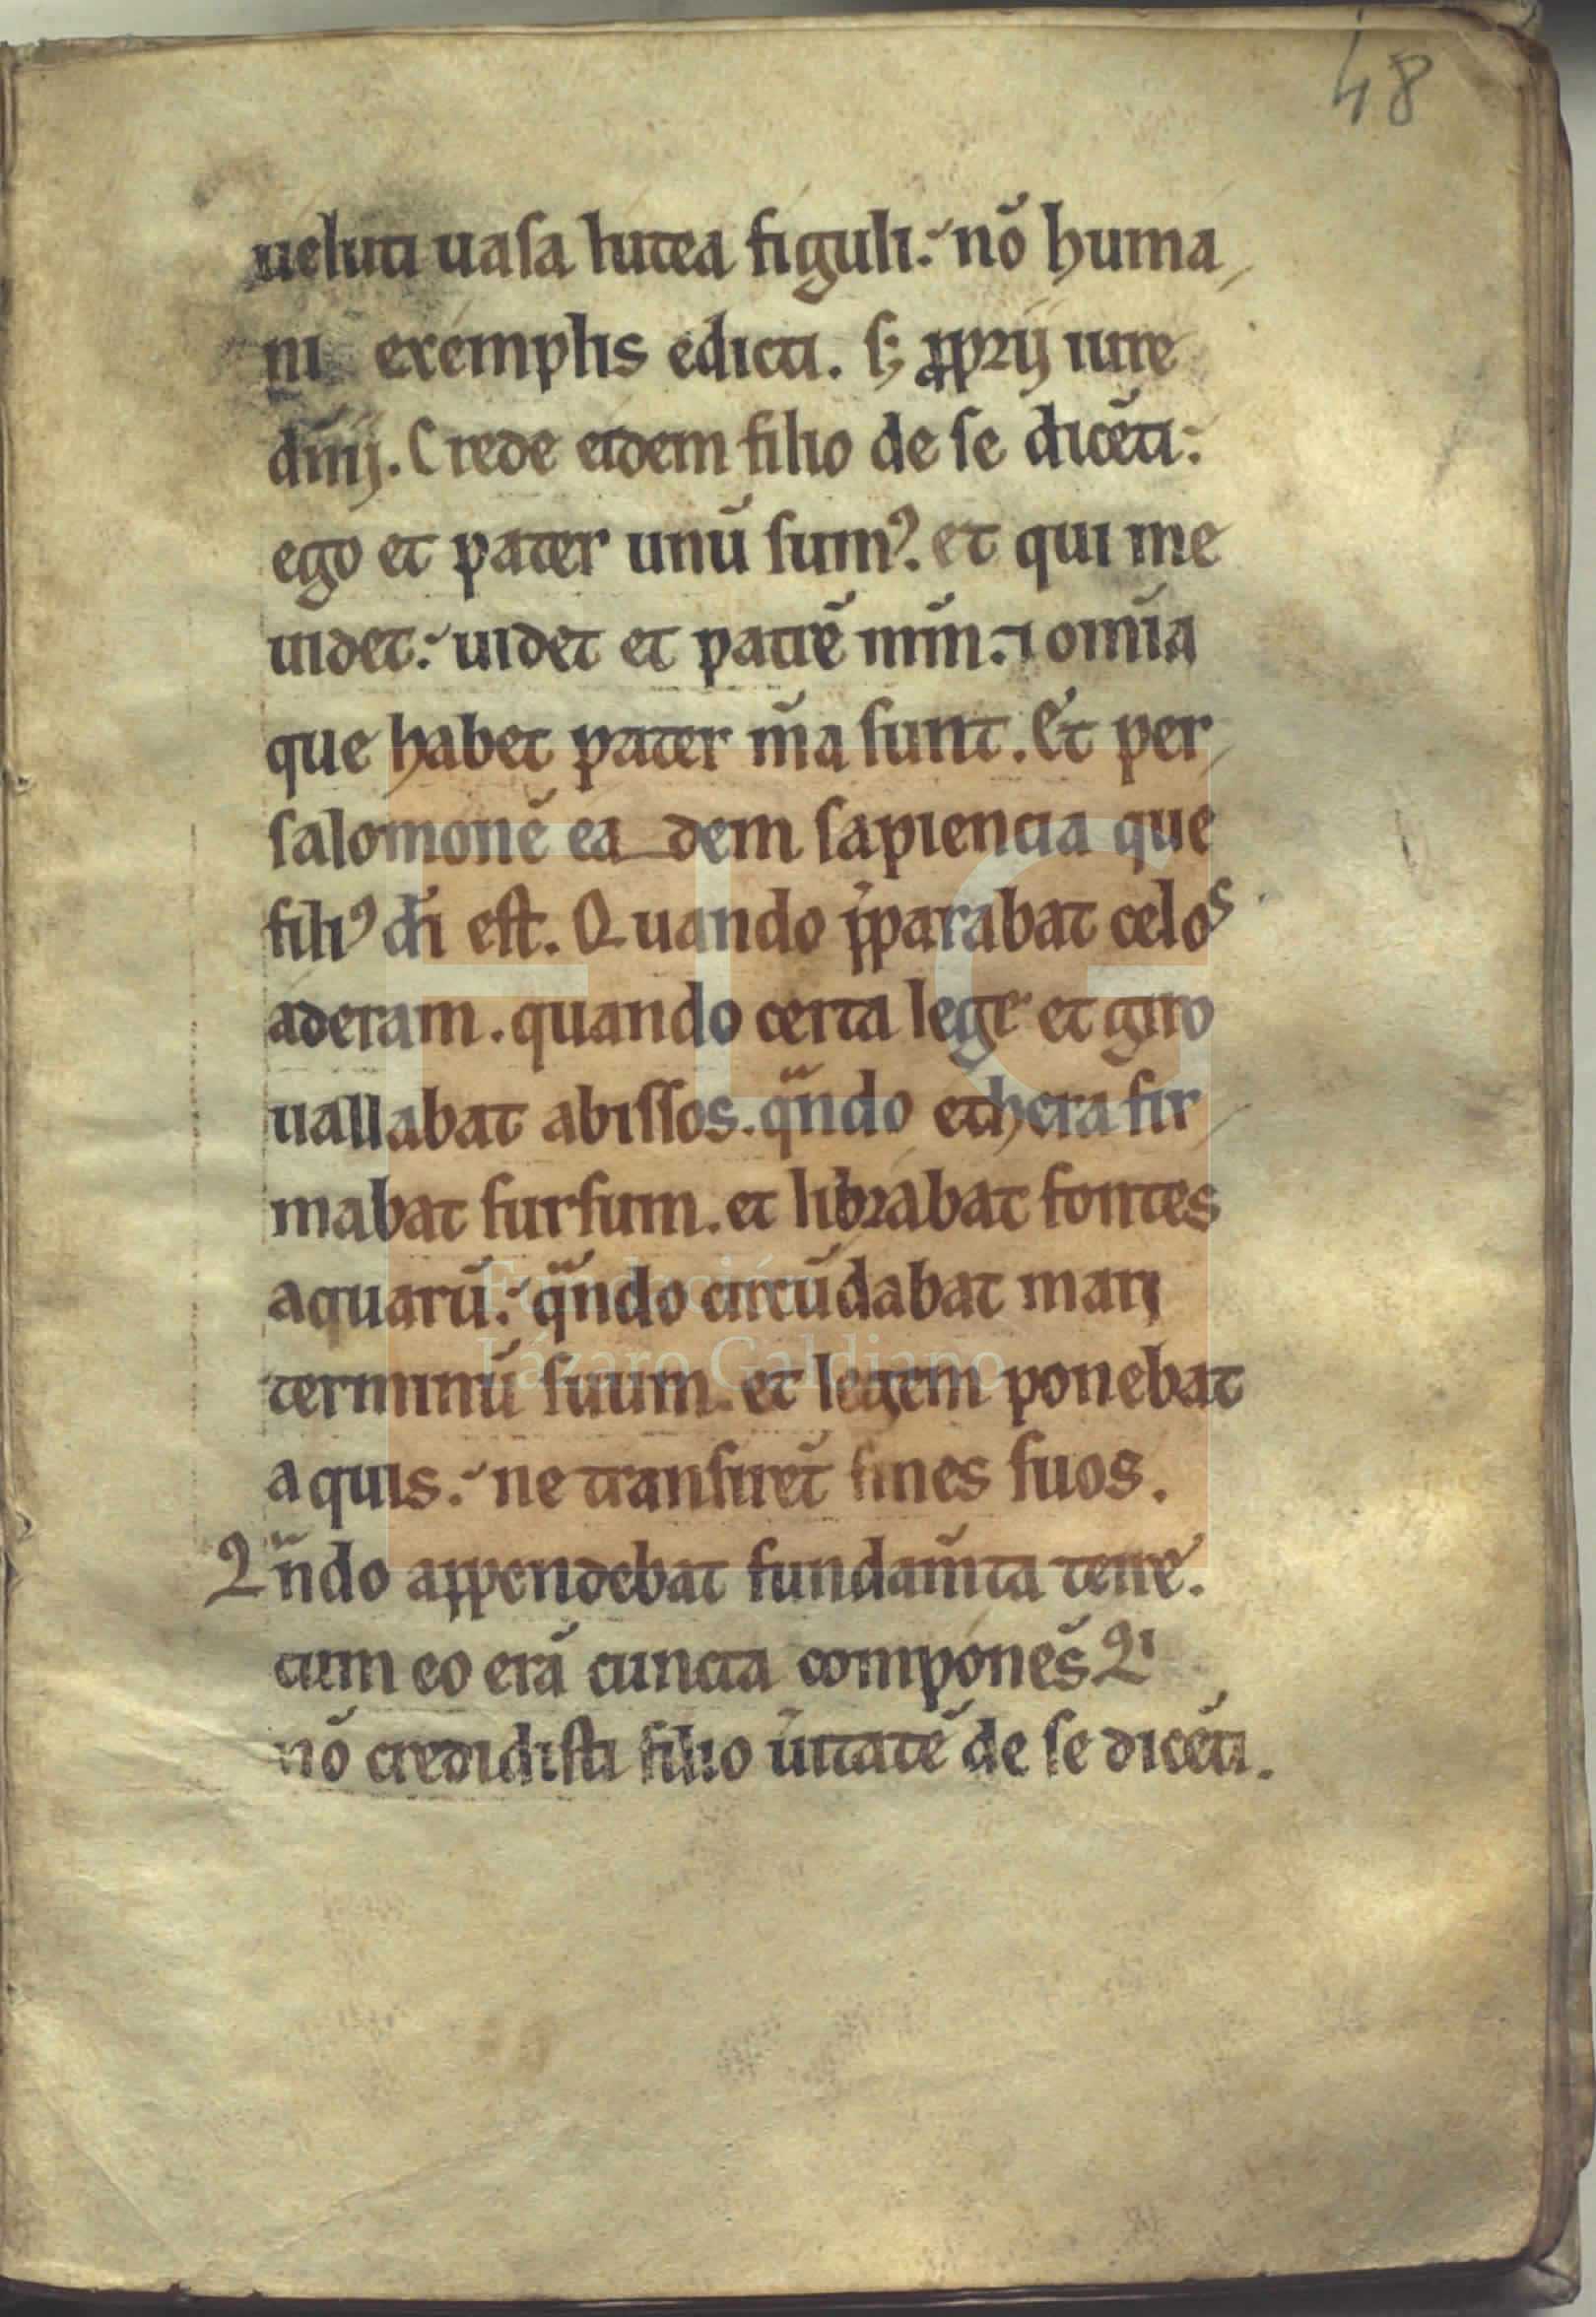 48
ueluti uasa lutea figuli: nõ huma
ni exemplis edicti. s; ꝓprij iure
dñij. Crede eidem filio de se dicẽti:
ego et pater unũ sumꝰ. et qui me
uidet: uidet et patrẽ mm̃. ⁊ omĩa
que habet pater m̃a sunt. Et per
salomonẽ ea dem sapiencia que
filiꝰ dĩ est. Quando p̃parabat celos
aderam. quando certa lege et giro
uallabat abissos. qñdo ethera fir
mabat sursum. et librabat fontes
aquarũ: qñdo circũdabat mari
terminũ suum. et legem ponebat
aquis: ne transirẽt fines suos.
Qñdo appendebat fundam̃ta terre.
cum eo erã cuncta componẽs Qi
nõ credidisti filio ũitatẽ de se dicẽti.
Fundación
Lázaro Galdiano
FLG